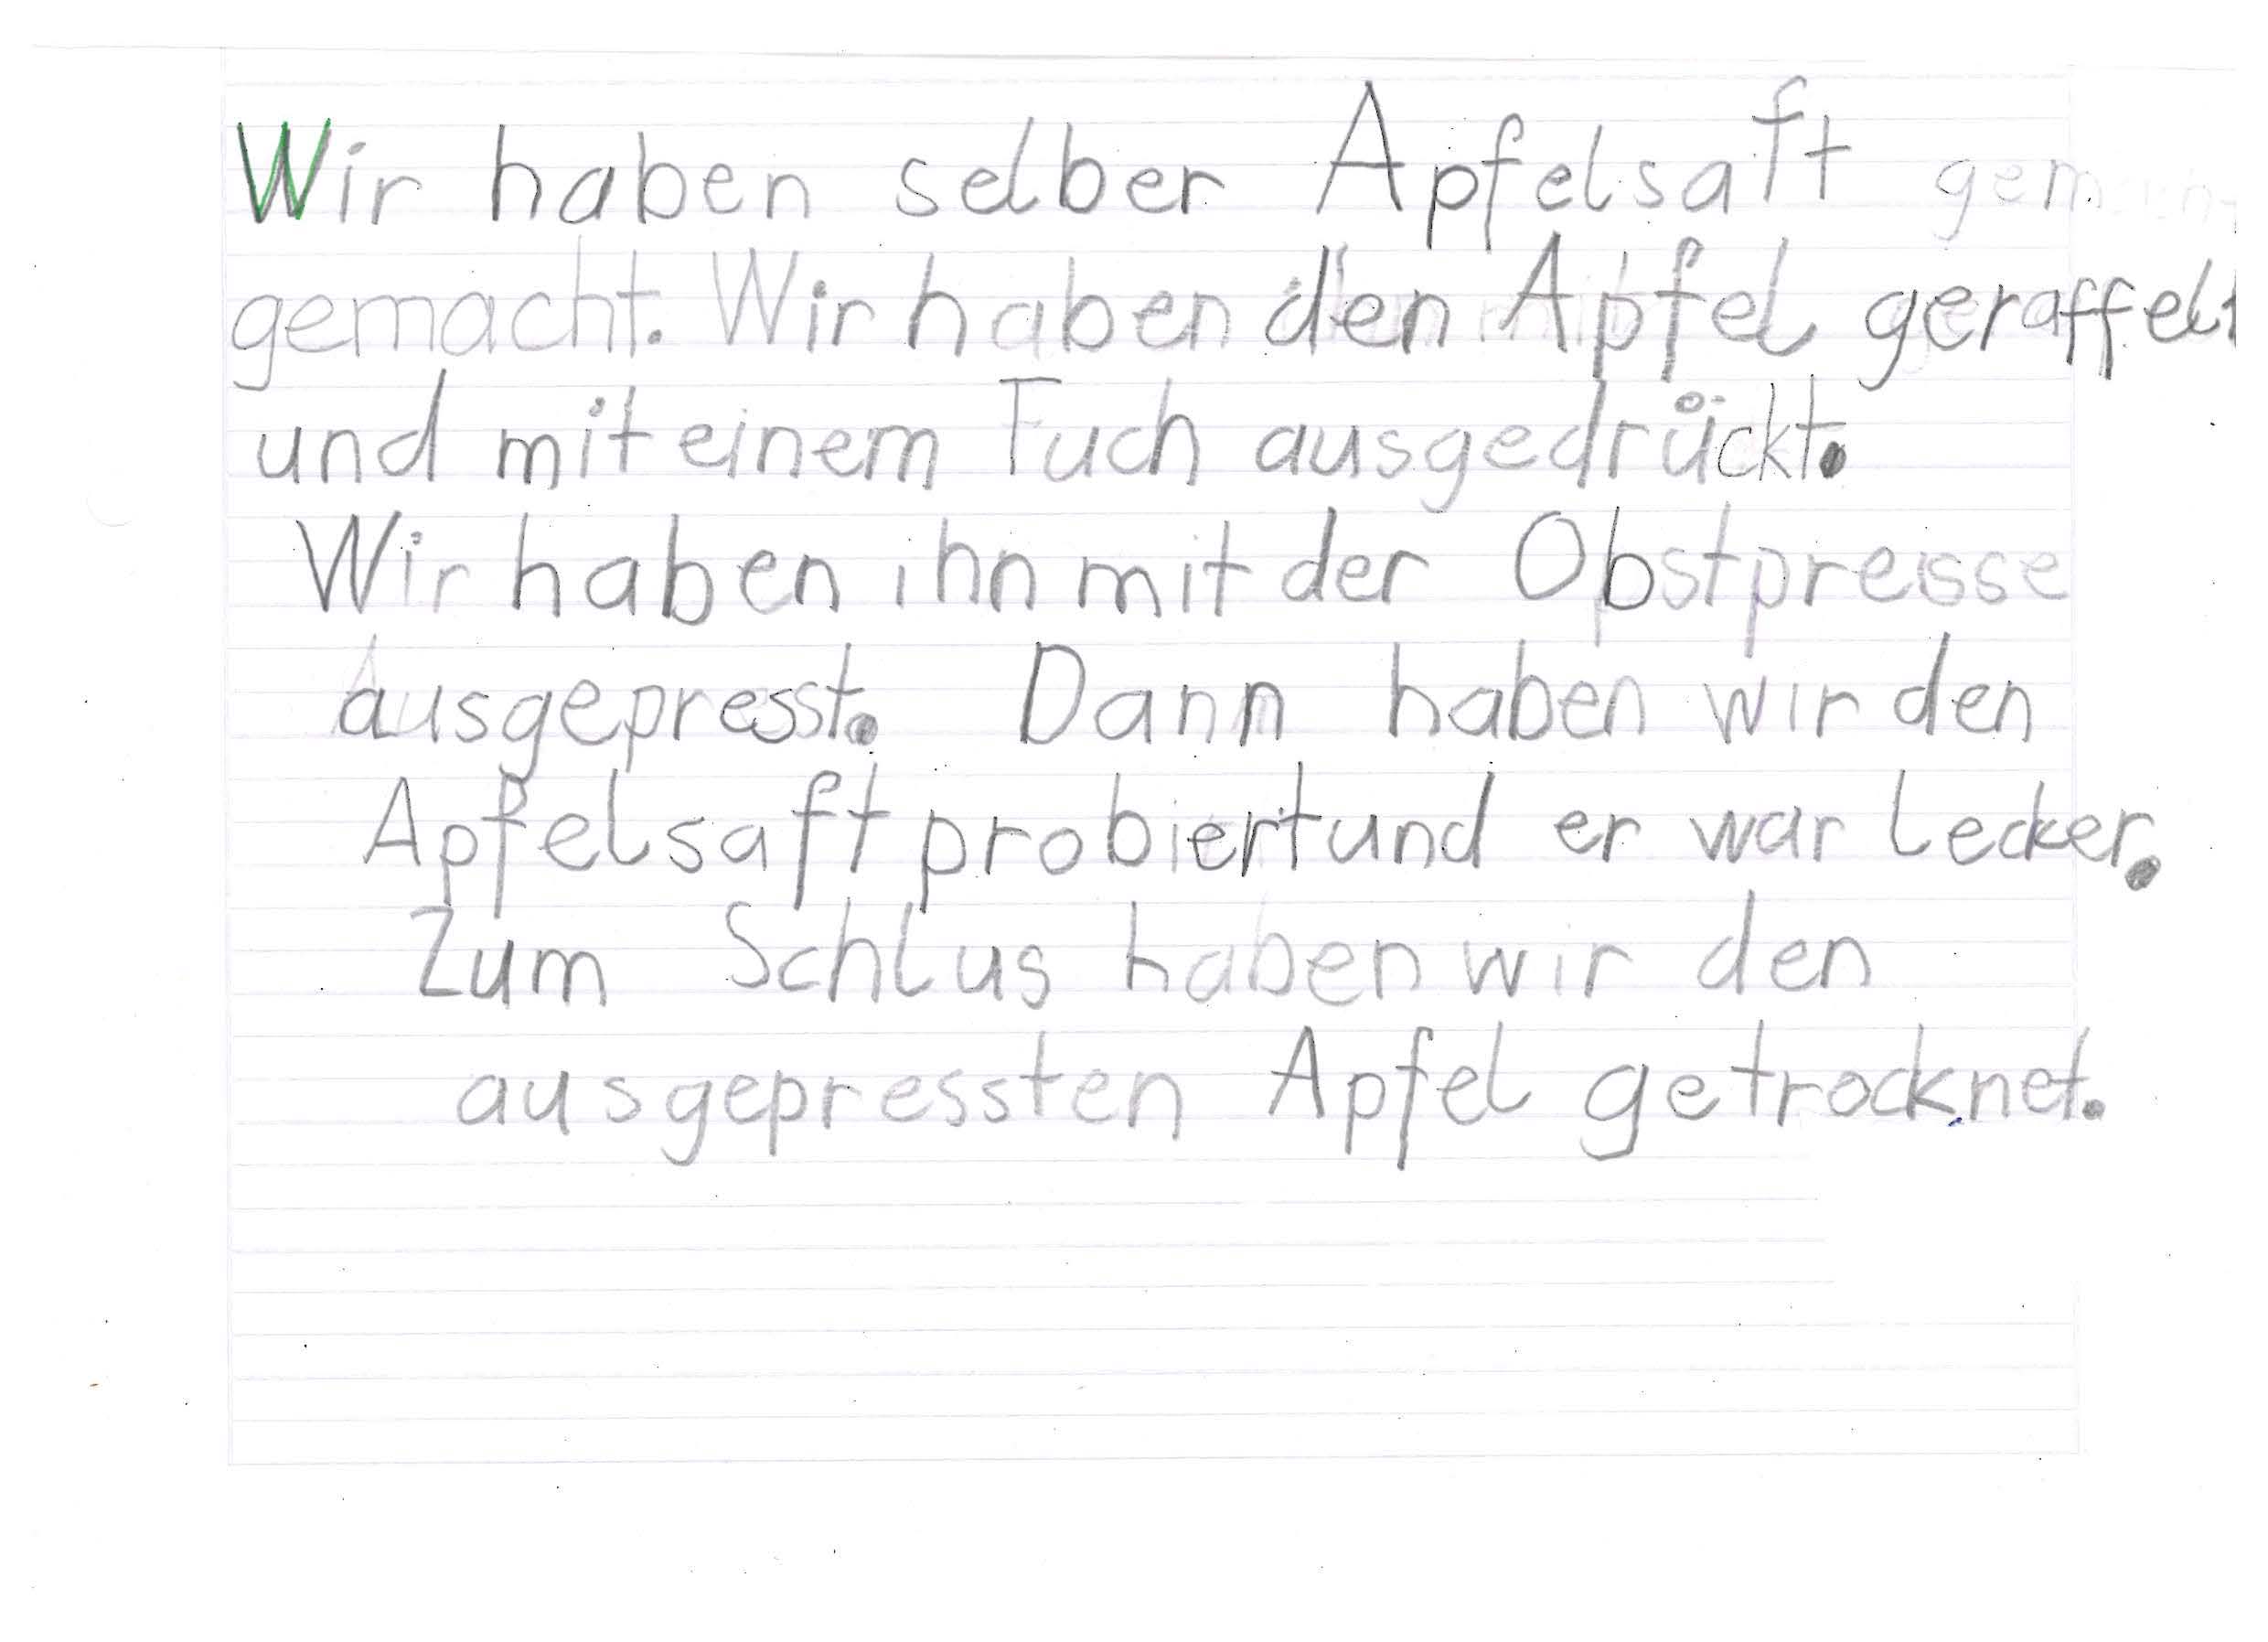 Wir haben selber Apfelsaft
gemacht. Wir haben den Apfel geraffelt
und mit einem Tuch ausgedrückt.
Wir haben ihn mit der Obstpresse
ausgepresst. Dann haben wir den
Apfelsaft probiert und er war lecker.
Zum Schlus haben wir den
ausgepressten Apfel getrocknet.